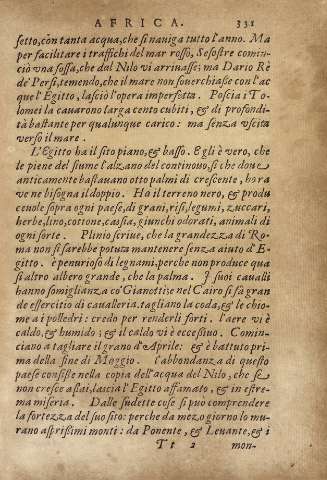 AFRICA. 331
setto, con tanta acqua, che si nauiga tutto l'anno. Ma
per facilitare i traffichi del mar rosso, Sesostre comin
ciò una fossa, che dal Nilo vi arriuasse; ma Dario Rè
de' Persi, temendo, che il mare non souerchiasse con l'ac
que l'Egitto, lasciò l'opera imperfetta. Poscia i To-
lomei la cauarono larga cento cubiti, & di profondi-
tà bastante per qualunque carico: ma senza vscita
verso il mare.
L'Egitto ha il sito piano, & basso. Egli è vero, che
le piene del fiume l'alzano del continouo, si che doue
anticamente bastauano otto palmi di crescente, hora
ve ne bisogna il doppio. Ha il terreno nero, & produ
ceuole sopra ogni paese, di grani, risi, legumi, zuccari,
herbe, lino, cottone, cassia, giunchi odorati, animali di
ogni sorte. Plinio scriue, che la grandezza di Ro-
ma non si sarebbe potuta mantenere senza aiuto d'E-
gitto. è penurioso di legnami, perche non produce qua
si altro albero grande, che la palma. I suoi caualli
hanno somiglianza co' Gianetti: e nel Cairo si fà gran
de essercitio di caualleria. tagliano la coda, & le chio-
me a i polledri: credo per renderli forti. l'aere vi è
caldo, & humido; & il caldo vi è eccessiuo. Comin-
ciano a tagliare il grano d'Aprile: & è battuto pri
ma della fine di Maggio. l'abbondanza di questo
paese consiste nella copia dell'acqua del Nilo, che se
non cresce assai, lascia l'Egitto affamato, & in estre-
ma miseria. Dalle sudette cose si può comprendere
la fortezza del suo sito: perche da mezogiorno lo mu-
rano asprissimi monti: da Ponente, & Leuante, & i
Tt 2 mon-